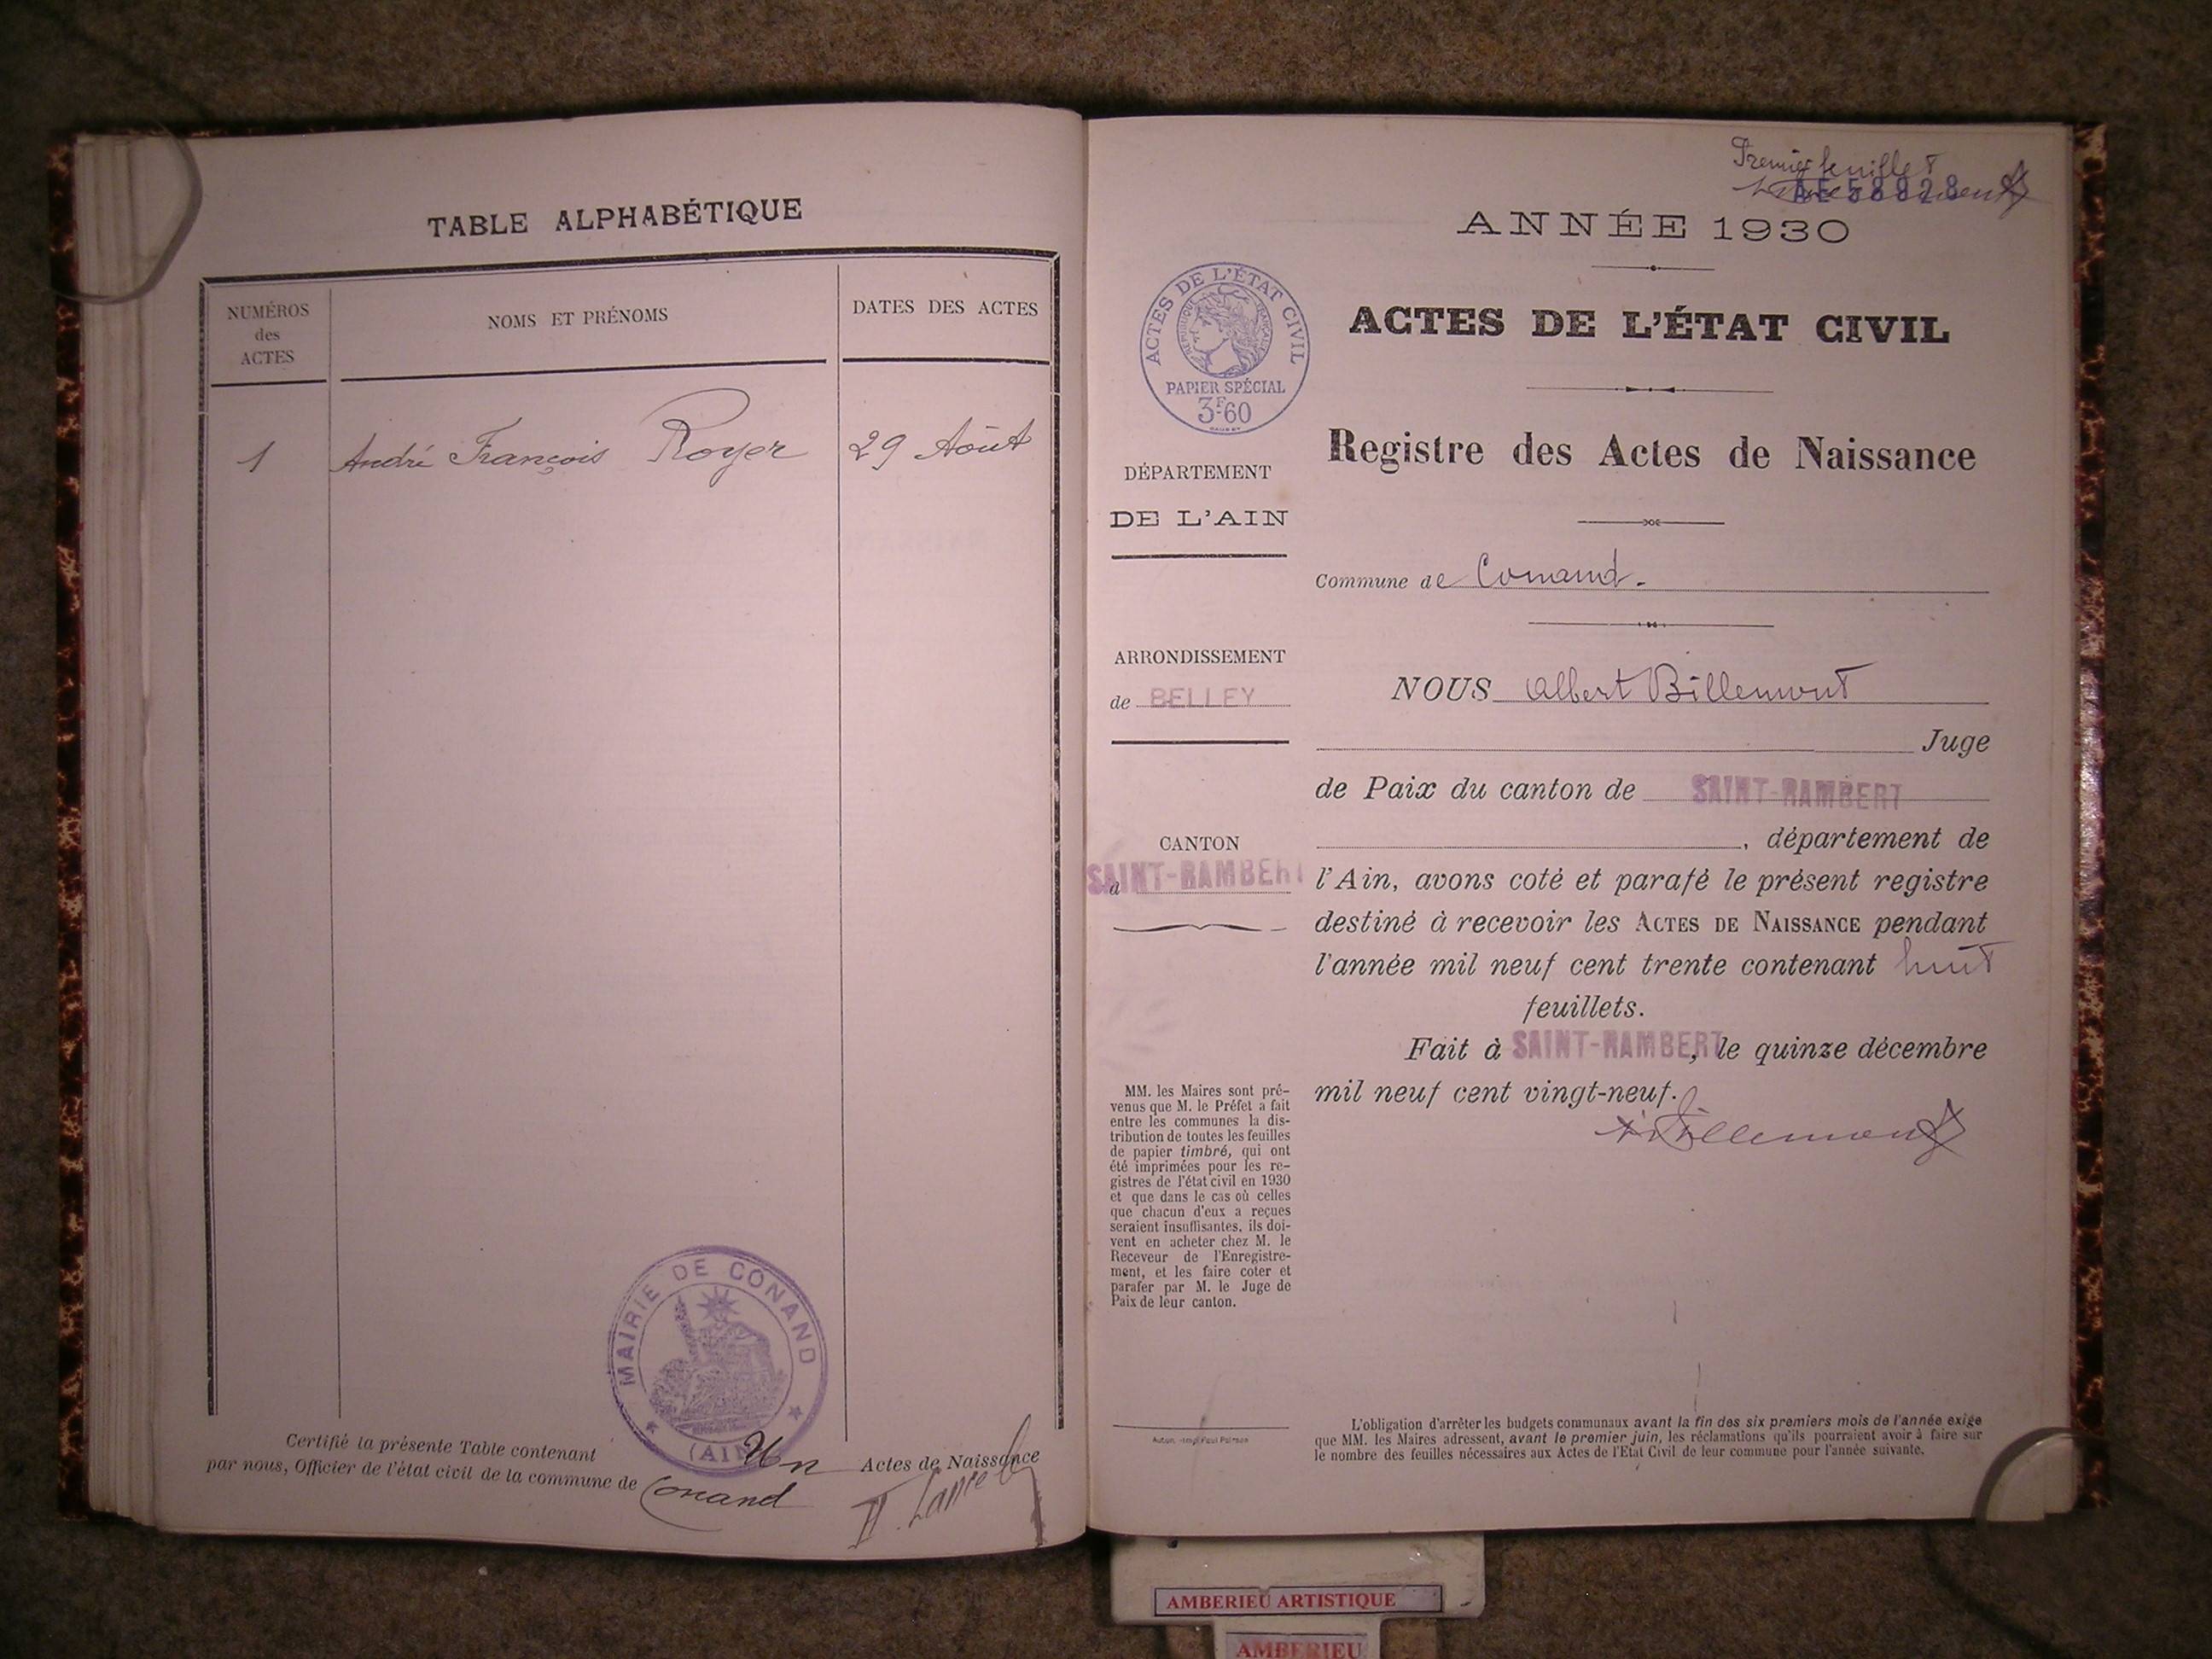 TABLE ALPHABÉTIQUE
NUMÉROS
des
ACTES
NOMS ET PRÉNOMS
DATES DES ACTES
1 André François Royer 29 Août
MAIRIE DE CONAND
(AIN)
Certifié la présente Table contenant Un Actes de Naissance
par nous, Officier de l'état civil de la commune de Conand
Premier feuillet
AE 58928
ANNÉE 1930
ACTES DE L'ÉTAT CIVIL
RÉPUBLIQUE FRANÇAISE
PAPIER SPÉCIAL
3F60
ACTES DE L'ÉTAT CIVIL
Registre des Actes de Naissance
DÉPARTEMENT
DE L'AIN
Commune de Conand.
ARRONDISSEMENT
de BELLEY
CANTON
d SAINT-RAMBERT
NOUS Albert Billemont
Juge
de Paix du canton de SAINT-RAMBERT
, département de
l'Ain, avons coté et parafé le présent registre
destiné à recevoir les ACTES DE NAISSANCE pendant
l'année mil neuf cent trente contenant huit
feuillets.
Fait à SAINT-RAMBERT, le quinze décembre
mil neuf cent vingt-neuf.
Billemont
MM. les Maires sont pré-
venus que M. le Préfet a fait
entre les communes la dis-
tribution de toutes les feuilles
de papier timbré, qui ont
été imprimées pour les re-
gistres de l'état civil en 1930
et que dans le cas où celles
que chacun d'eux a reçues
seraient insuffisantes, ils doi-
vent en acheter chez M. le
Receveur de l'Enregistre-
ment, et les faire coter et
parafer par M. le Juge de
Paix de leur canton.
L'obligation d'arrêter les budgets communaux avant la fin des six premiers mois de l'année exige
que MM. les Maires adressent, avant le premier juin, les réclamations qu'ils pourraient avoir à faire sur
le nombre des feuilles nécessaires aux Actes de l'Etat Civil de leur commune pour l'année suivante.
AMBERIEU ARTISTIQUE
AMBERIEU